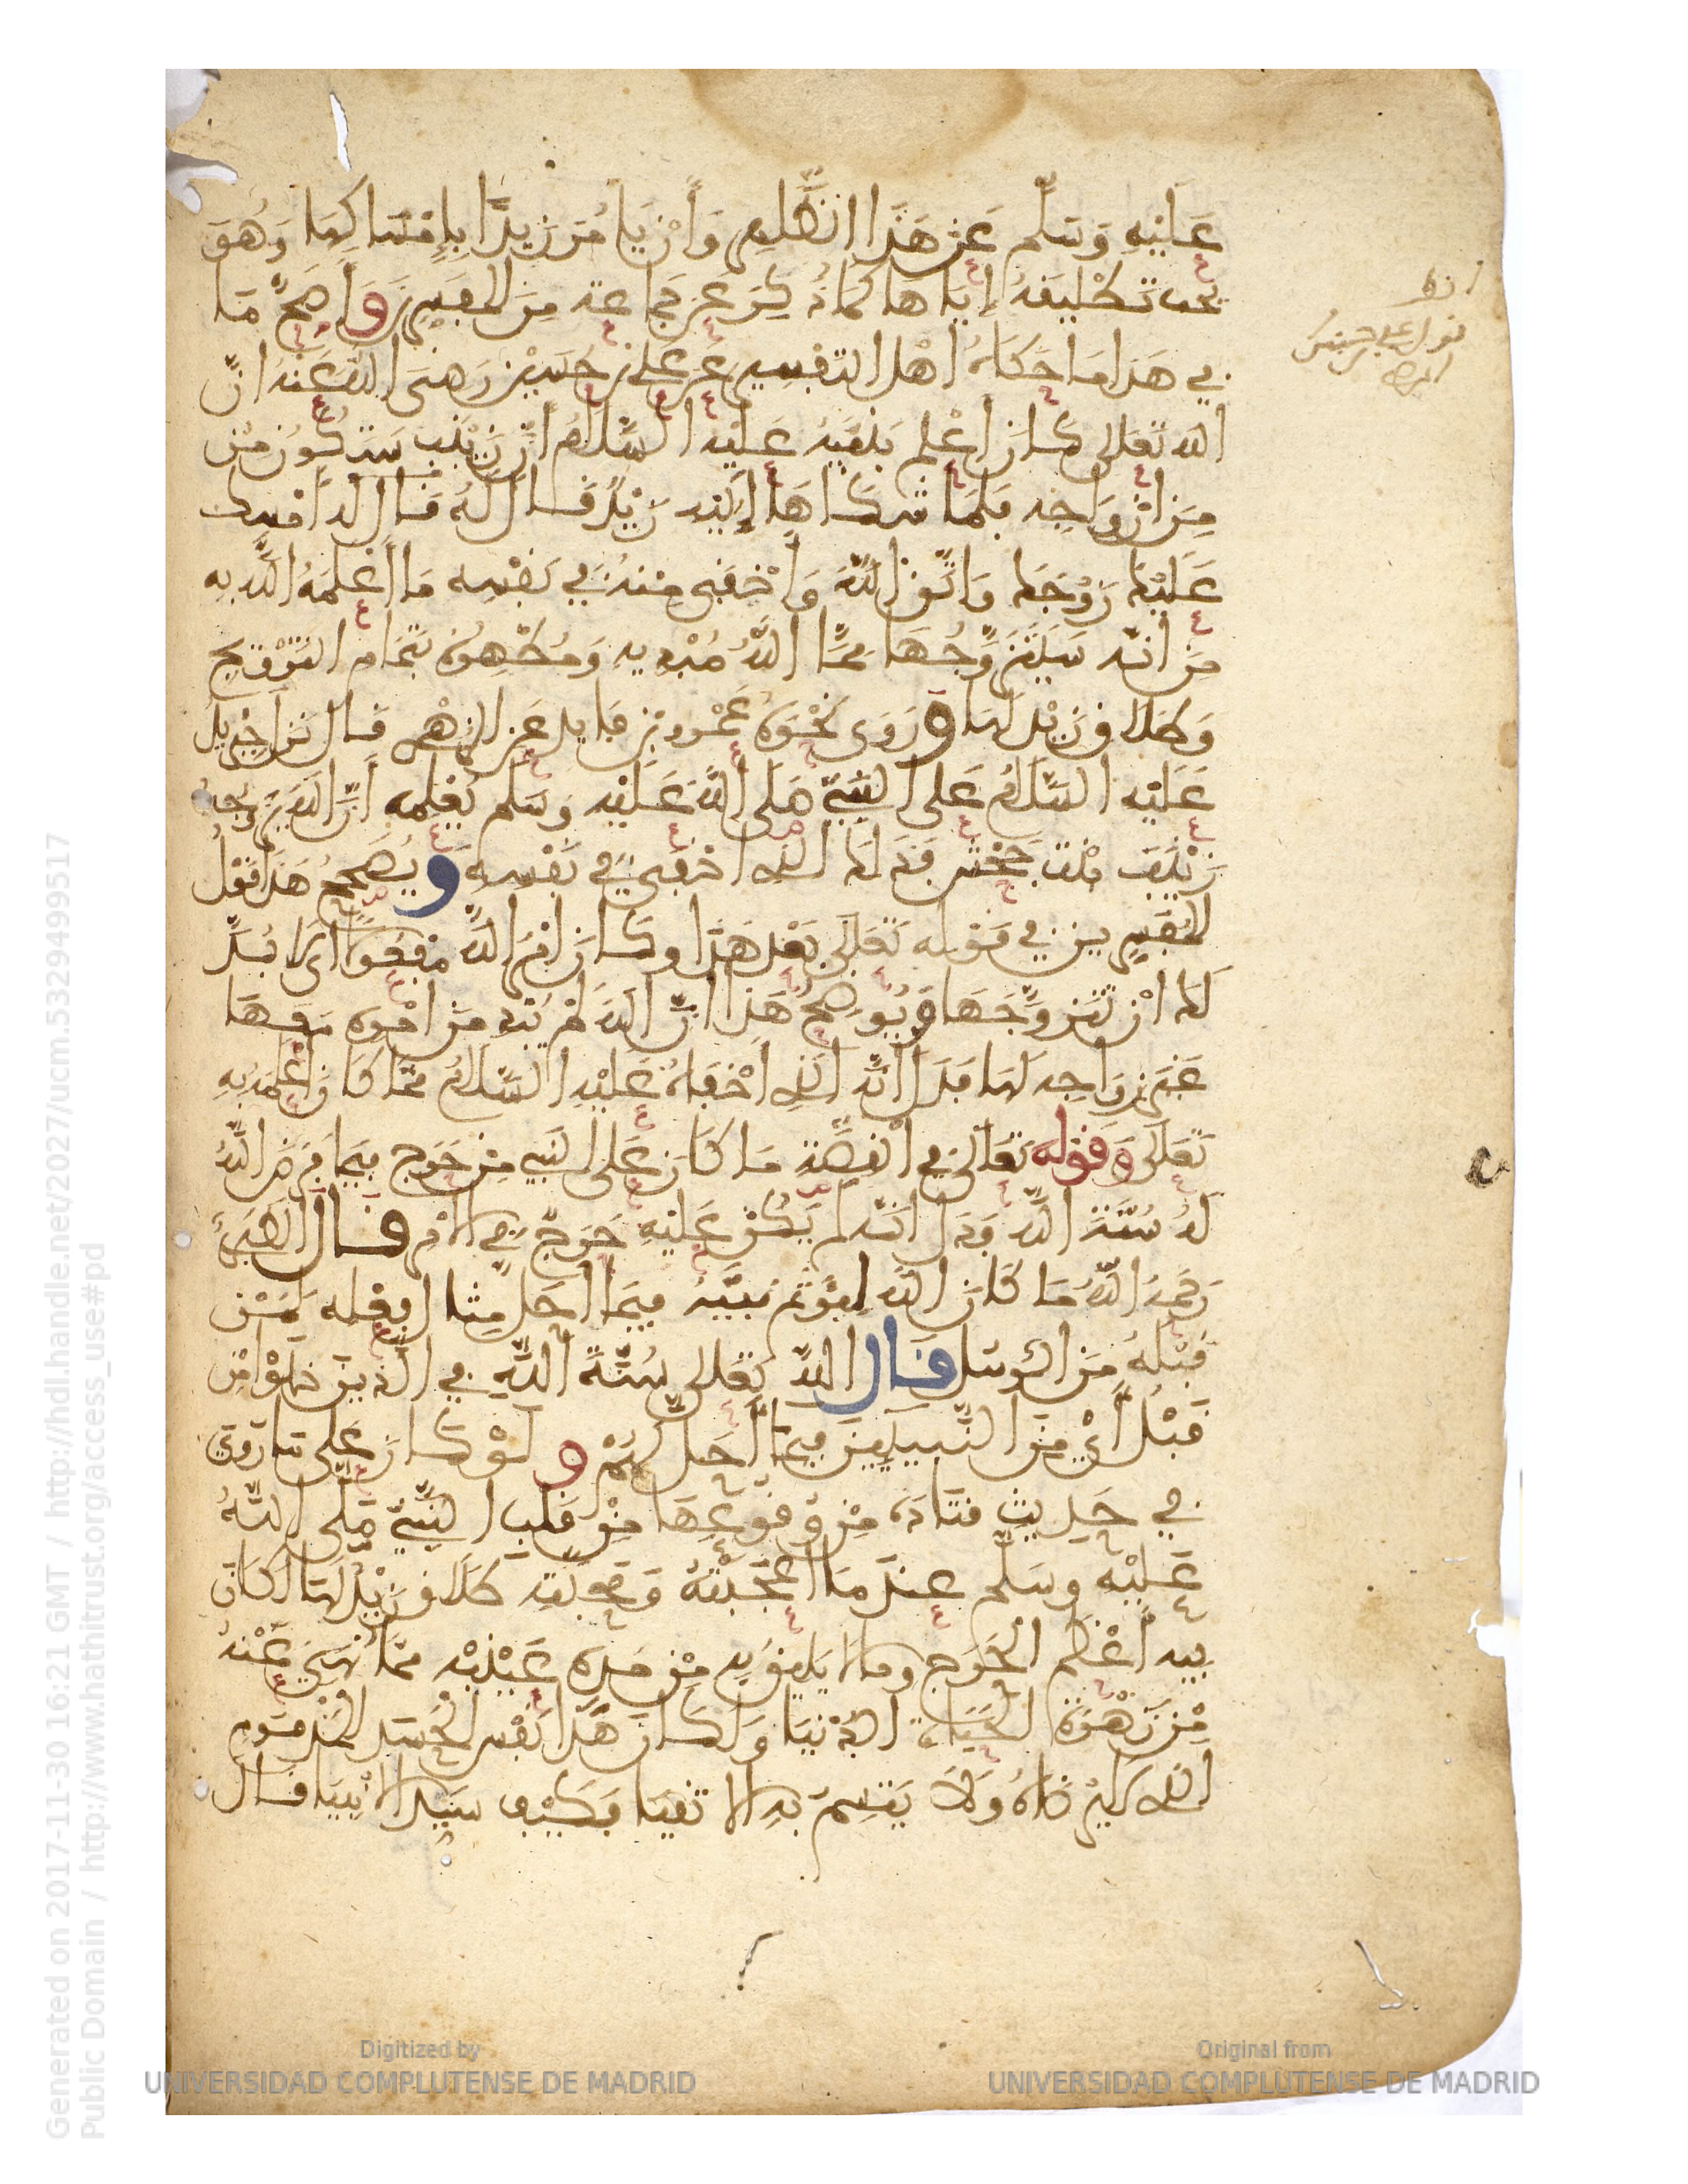 عليه وسلم عن هذا الظاهر وأن يأمر زيدا بإمساكها وهو
يحب تطليقه إياها كما ذكر عن جماعة من المفسرين وأصح ما
في هذا ما حكاه أهل التفسير عن علي بن حسين رضي الله عنه أن
الله تعالى كان أعلم نبيه عليه السلام أن زينب ستكون من
من ازواجه فلما شكاها إليه زيد قال له قال له أمسك
عليك زوجك واتق الله وأخفى منه في نفسه ما أعلمه الله به
من أنه سيتزوجها مما الله مبديه ومظهره بتمام التزويج
وطلاق زيد لها وروى نحوه عمرو بن فايد عن الزهري قال نزل جبريل
عليه السلام على النبي صلى الله عليه وسلم يعلمه أن الله يزوجه
زينب بنت جحش فذلك الذي أخفى في نفسه ويصحح هذا قول
المفسرين في قوله تعالى بعد هذا وكان أمر الله مفعولا أي لا بد
لك أن تتزوجها ويوضح هذا أن الله لم يبد من أمره معها
غير زواجه لها فدل أنه الذي أخفاه عليه السلام مما كان أعلمه به
تعالى وقوله تعالى في القصة ما كان على النبي من حرج فيما فرض الله
له سنة الله فدل أنه لم يكن عليه حرج في الأمر قال الطبري
رحمه الله ما كان الله ليؤثم نبيه فيما أحل مثال فعله لمن
قبله من الرسل قال الله تعالى سنة الله في الذين خلوا من
قبل أي من النبيين فيما أحل لهم ولو كان على ما روي
في حديث قتادة من وقوعها من قلب النبي صلى الله
عليه وسلم عندما أعجبته ومحبته طلاق زيد لها لكان
فيه أعظم الحرج وما لا يليق به من مد عينيه مما نهي عنه
من زهرة الحياة الدنيا ولكان هذا نفس الحسد المذموم
الذي لا يرضاه ولا يتسم به الأتقيا فكيف سيد الأنبيا قال
انظر
قول علي بن حسين